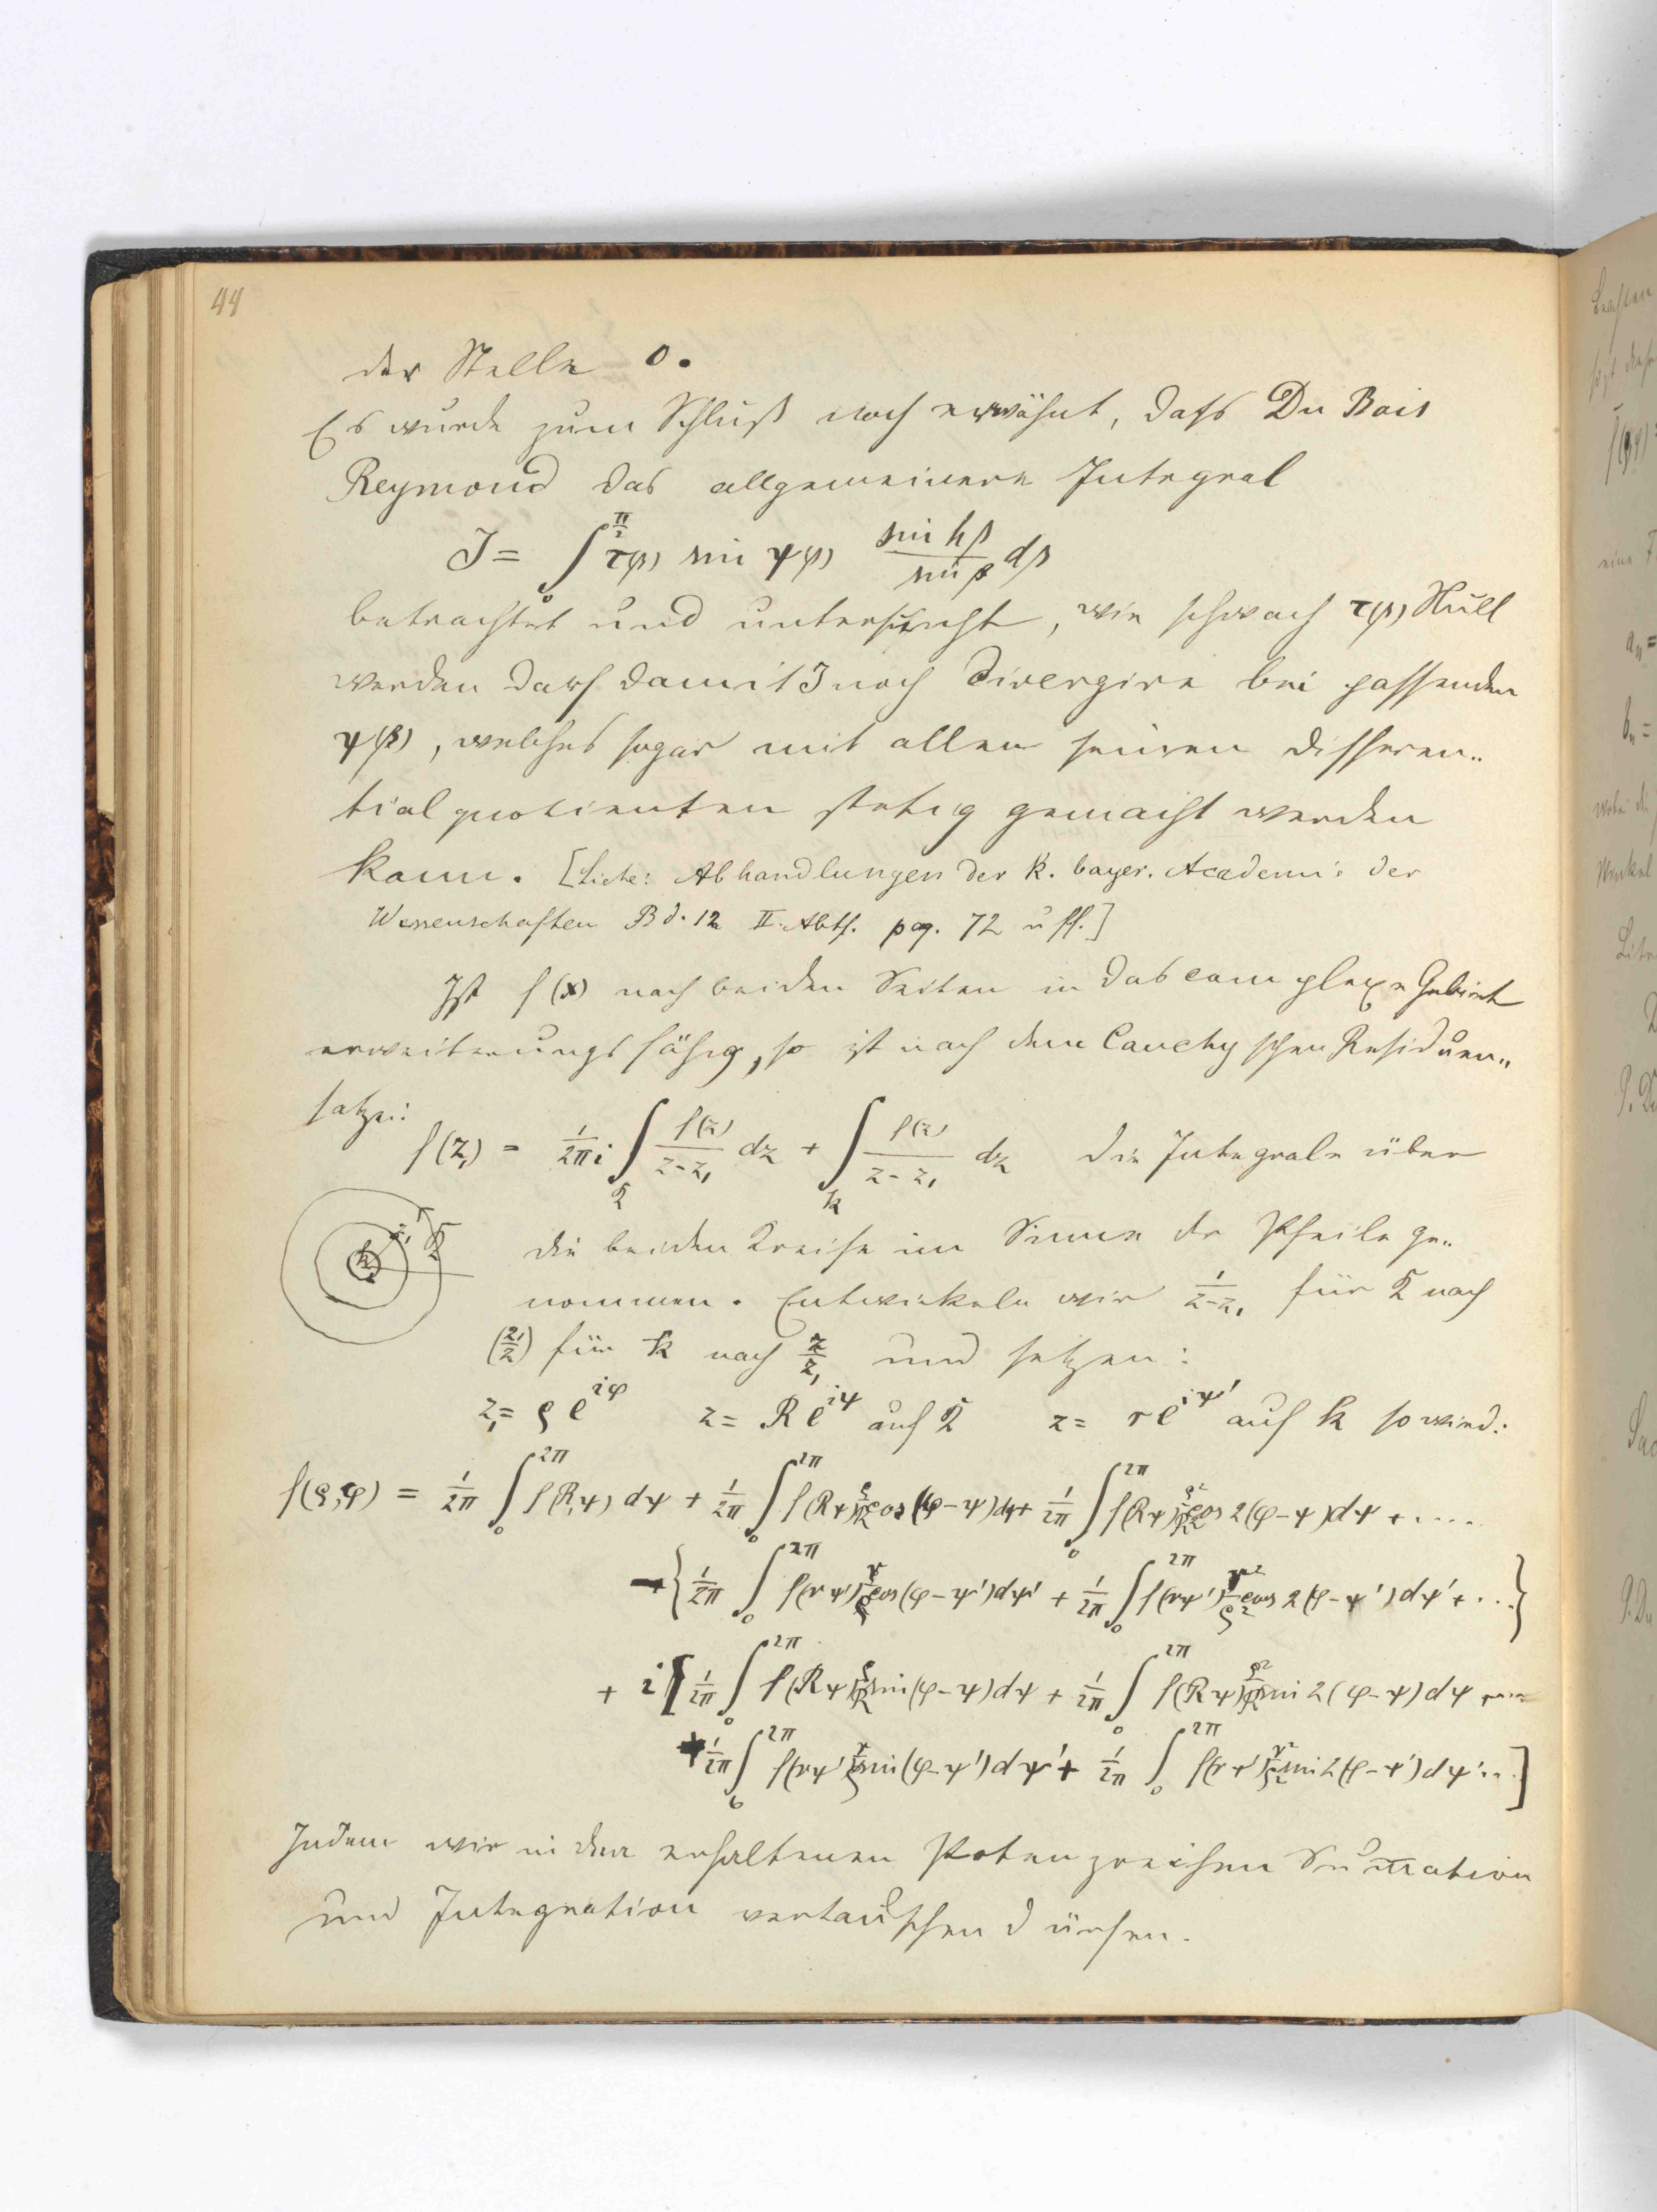 44
der Stelle 0.
Es wurde zum Schluß noch erwähnt, dass Du Bois
Reymond das allgemeinere Integral
J = ∫₀^{π/2} τ(β) sin ψ(β) (sin hβ / sin β) dβ
betrachtet und untersucht, wie schwach τ(β) Null
werden darf damit J noch divergire bei passenden
ψ(β), welches sogar mit allen seinen Differen„
tialquotienten stetig gemacht werden
kann. [Siehe: Abhandlungen der k. bayer. Academie der
Wissenschaften Bd. 12 II. Abth. pag. 72 u ff.]
Ist f(x) nach beiden Seiten in das complexe Gebiet
erweiterungsfähig, so ist nach dem Cauchyschen Residuen„
satze:
f(z₁) = 1/2πi ∫_K f(z)/(z-z₁) dz + ∫_k f(z)/(z-z₁) dz die Integrale über
z₁ K
k
die beiden Kreise im Sinne der Pfeile ge„
nommen. Entwickeln wir 1/(z-z₁) für K nach
(z₁/z) für k nach z/z₁ und setzen:
z₁ = ρe^{iφ} z = Re^{iψ} auf K z = re^{iψ'} auf k so wird:
f(ρ,φ) = 1/2π ∫₀^{2π} f(R,ψ) dψ + 1/2π ∫₀^{2π} f(Rψ) ρ/R cos(φ-ψ)dψ + 1/2π ∫₀^{2π} f(Rψ) ρ²/R² cos 2(φ-ψ)dψ + ....
-{1/2π ∫₀^{2π} f(rψ') r/ρ cos(φ-ψ')dψ' + 1/2π ∫₀^{2π} f(rψ') r²/ρ² cos 2(φ-ψ')dψ' + ...}
+ i[1/2π ∫₀^{2π} f(Rψ) ρ/R sin(φ-ψ)dψ + 1/2π ∫₀^{2π} f(Rψ) ρ²/R² sin 2(φ-ψ)dψ + ...
+ 1/2π ∫₀^{2π} f(rψ') r/ρ sin(φ-ψ')dψ' + 1/2π ∫₀^{2π} f(rψ') r²/ρ² sin 2(φ-ψ')dψ'...]
Indem wir in den erhaltenen Potenzreihen Sum̅ation
und Integration vertauschen dürfen.